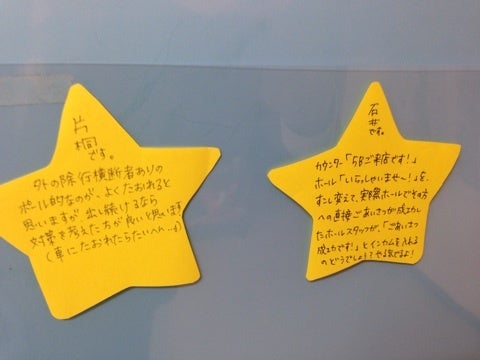 片
桐
です。
外の除行横断者ありの
ポール的なのが、よくたおれると
思いますが出し続けるなら
対策を考えた方が良いと思います
(車にたおれたらたいへん…)
石
井
です。
カウンター「58ご来店です!」
ホール「いらっしゃいませ〜!」を、
すこし変えて、実際ホールでその方
への直接ごあいさつが成功し
たホールスタッフが、「ごあいさつ
成功です!」とインカムを入れる
のどうでしょう?